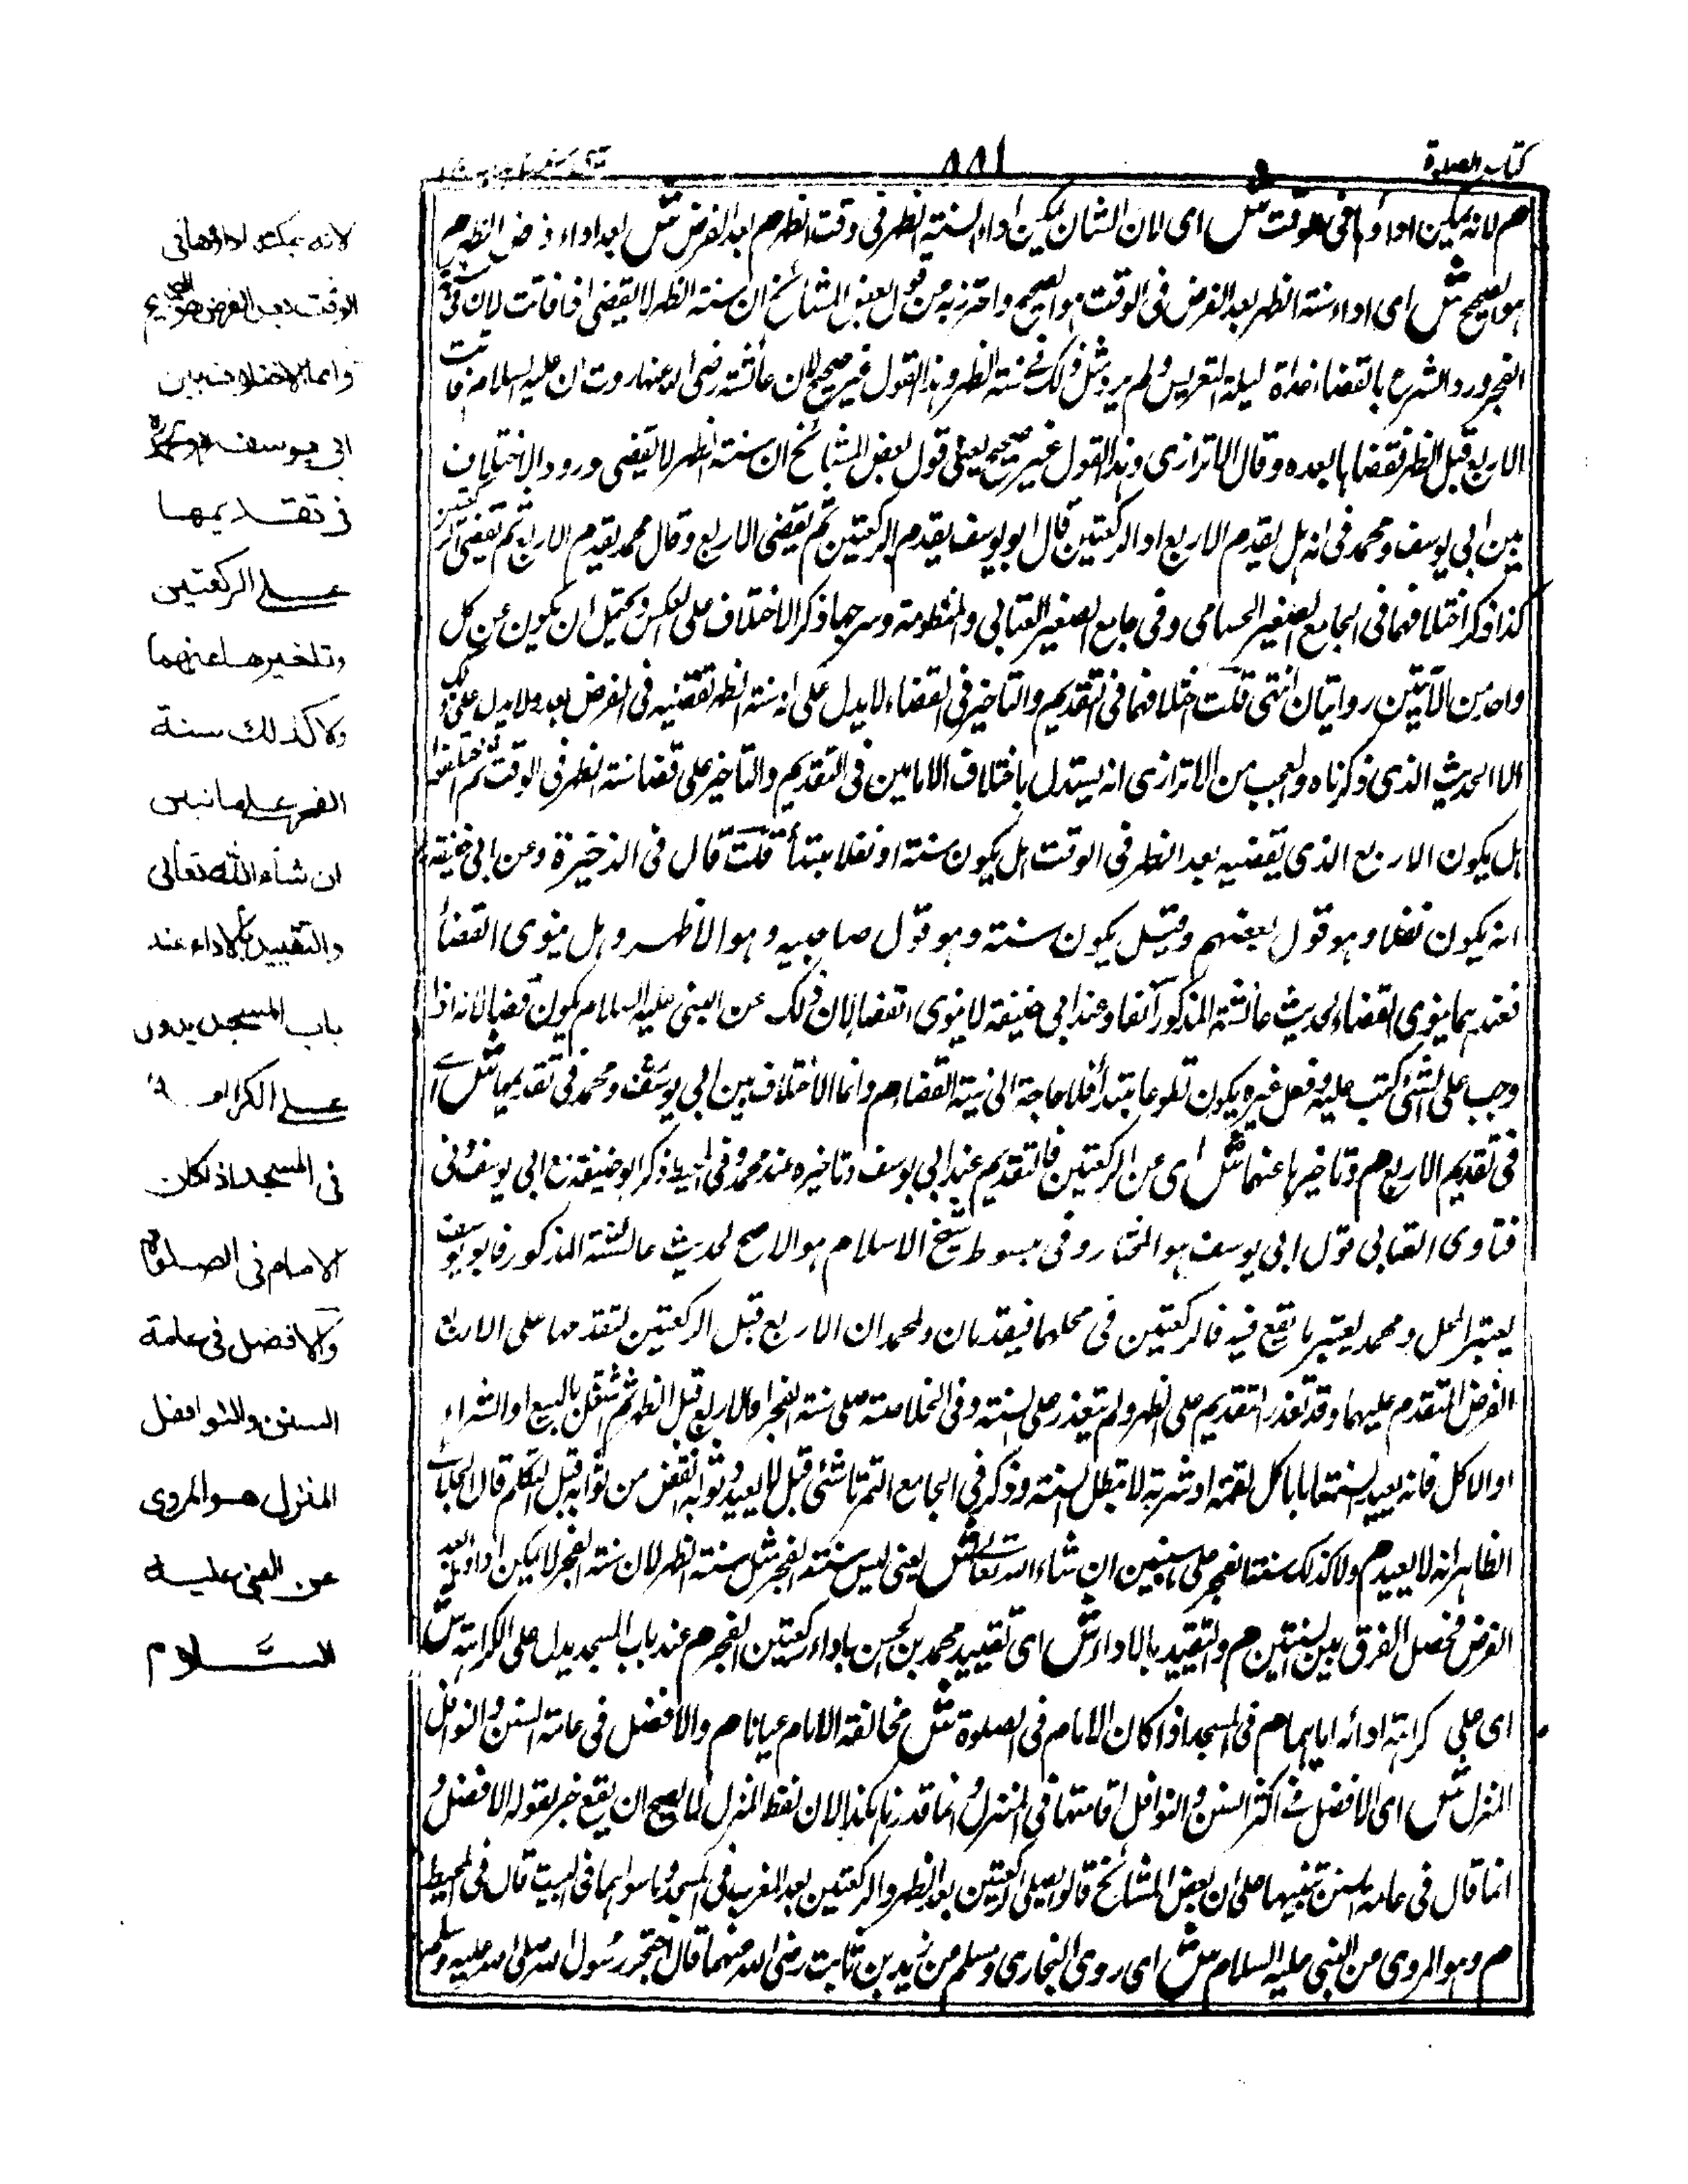 كتاب الصلوة
٨٨١
م لانه يمكن اداؤها فى الوقت ش اى لان الشان يمكن اداء السنة الظهر فى وقت الظهر م بعد الفرض ش بعد اداء فرض الظهر م
هو الصحيح ش اى اداء سنة الظهر بعد الفرض فى الوقت هو الصحيح واحترز به من قول بعض المشائخ ان سنة الظهر لا يقضى اذا فاتت لان فى
الفجر ورد الشرع بالقضاء غداة ليلة التعريس ولم يرد مثل ذلك فى سنة الظهر وهذا القول غير صحيح لان عائشة رضى الله عنها روت ان عليه السلام فاتت
الاربع قبل الظهر فقضاها بعده وقال الاترازى وهذا القول غير صحيح يعنى قول بعض المشائخ ان سنة الظهر لا يقضى ورود الاختلاف
بين ابى يوسف ومحمد فى انه هل يقدم الاربع او الركعتين قال ابو يوسف يقدم الركعتين ثم يقضى الاربع وقال محمد يقدم الاربع ثم يقضى
كذا ذكر اختلافهما فى الجامع الصغير الحسامى وفى جامع الصغير العتابى والمنظومة وشرحها ذكر الاختلاف على العكس ويحتمل ان يكون عن كل
واحد من روايتان انتهى قلت اختلافهما فى التقديم والتاخير فى القضاء لا يدل على ان سنة الظهر تقضيه فى الفرض بعد ولا يدل على
الا الحديث الذى ذكرناه والعجب من الاترازى انه يستدل باختلاف الامامين فى التقديم والتاخير على قضا سنة الظهر فى الوقت ثم اختلفوا
هل يكون الاربع الذى يقضيه بعد الظهر فى الوقت هل يكون سنة او نفلا مبتدأ قلت قال فى الذخيرة وعن ابى حنيفة
انه يكون نفلا وهو قول بعضهم وقيل يكون سنة وهو قول صاحبيه وهو الاظهر وهل ينوى القضأ
فعندهما ينوى القضاء لحديث عائشة المذكور آنفا وعند ابى حنيفة لا ينوى القضا لان ذلك عن النبى عليه السلام يكون قضا لانه اذا
وجب على الشئ كتب عليه وفعل غيره يكون تطوعا مبتدأ فلا حاجة الى نية القضاء م وانما الاختلاف بين ابى يوسف ومحمد فى تقديمها ش اى
فى تقديم الاربع م وتاخيرها عنهما ش اى من الركعتين فالتقديم عند ابى يوسف وتاخيره عند محمد وفى ذكر ابو حنيفة مع ابى يوسف وفى
فتاوى العتابى قول ابى يوسف هو المختار وفى مبسوط شيخ الاسلام هو الاصح لحديث عائشة المذكور فابو يوسف
يعتبر المحل ومحمد يعتبر ما يقع فيه فالركعتين فى محلهما فيقدمان ولمحمد ان الاربع قبل الركعتين لتقدمها على الاربع
الفرض المتقدم عليهما وقد تعذر التقديم على الظهر ولم يتعذر على السنة وفى الخلاصة صلى سنة الفجر او الاربع قبل الظهر ثم اشتغل بالبيع او الشراء
او الاكل فانه يعيد السنة اما باكل لقمة او شربة لا تبطل السنة وذكر فى الجامع التمرتاشى قيل لا يعيد وثوابه انقص من ثوابه قبل التكلم قال
الظاهر انه لا يعيد م ولا كذلك سنة الفجر على ما نبين ان شاء الله تعالى ش يعنى ليس سنة الفجر مثل سنة الظهر لان سنة الفجر لا يمكن اداؤها بعد
الفرض فحصل الفرق بين السنتين م والتقييد بالاداء ش اى تقييد محمد بن الحسن باداء ركعتين الفجر م عند باب المسجد يدل على الكراهة ش
اى على كراهة ادائه اياهما م فى المسجد اذا كان الامام فى الصلوة ش مخالفة الامام عيانا م والافضل فى عامة السنن والنوافل
المنزل ش اى الافضل فى اكثر السنن والنوافل اقامتها فى المنزل وانما قدرنا هكذا لان لفظ المنزل لا يصح ان يقع خبر لقوله الافضل و
انما قال فى عامة السنن تنبيها على ان بعض المشائخ قالوا يصلى الركعتين بعد الظهر والركعتين بعد المغرب فى المسجد وما سواهما فى البيت قال فى المحيط
م وهو المروى عن النبى عليه السلام ش اى روى البخارى ومسلم من زيد بن ثابت رضى الله عنهما قال احتجر رسول الله صلى الله عليه وسلم
لانه يمكنه اداؤها فى
الوقت بعد الفرض هو الصحيح
وانما الاختلاف بين
ابى يوسف ومحمد
فى تقديمها
على الركعتين
وتاخيرها عنهما
ولا كذلك سنة
الفجر على ما نبين
ان شاء الله تعالى
والتقييد بالاداء عند
باب المسجد يدل
على الكراهة
فى المسجد اذا كان
الامام فى الصلوة
والافضل فى عامة
السنن والنوافل
المنزل هو المروى
عن النبى عليه
السلام